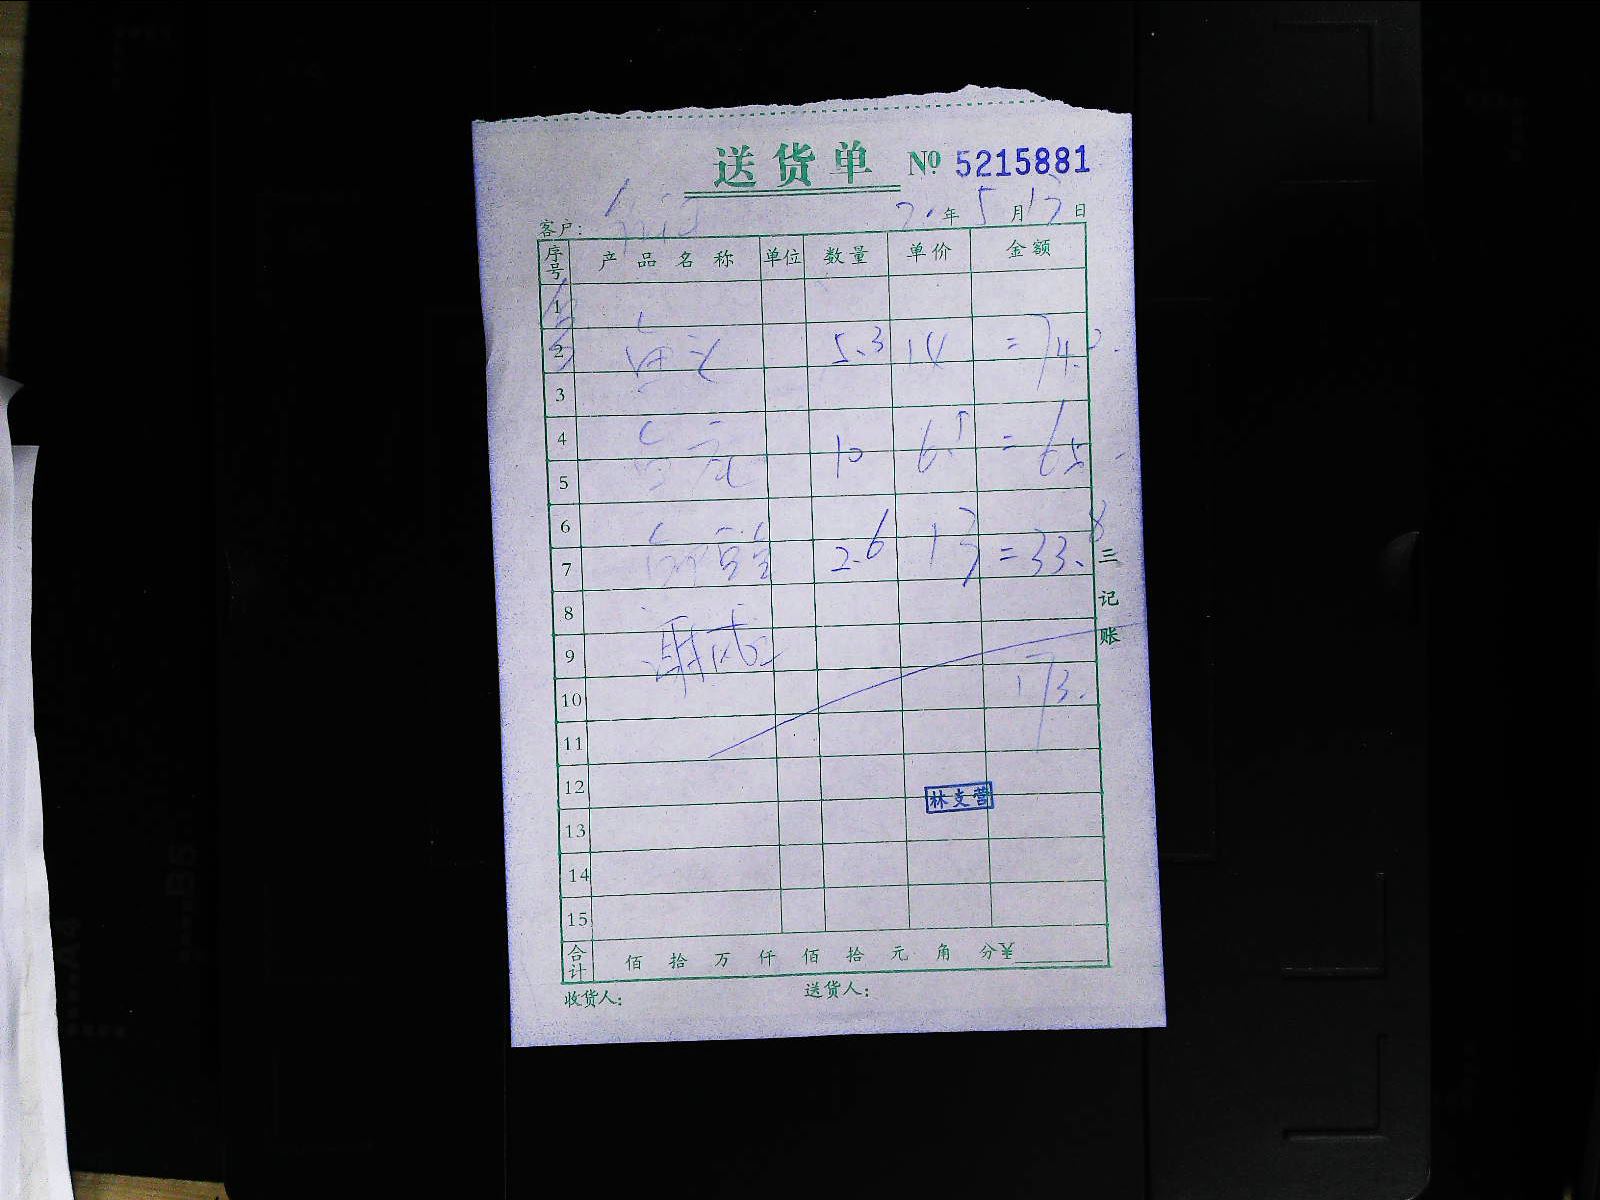 送货单 № 5215881
客户: 20年5月17日
序号 产品名称 单位 数量 单价 金额
1
2 鱼头 5.3 14 =74.2
3
4 10 6.5 =65.
5
6
7 2.6 13 =33.8
8
9
10 173.
11
12 林支营
13
14
15
合计 佰拾万仟佰拾元角分¥
收货人: 送货人:
三记账